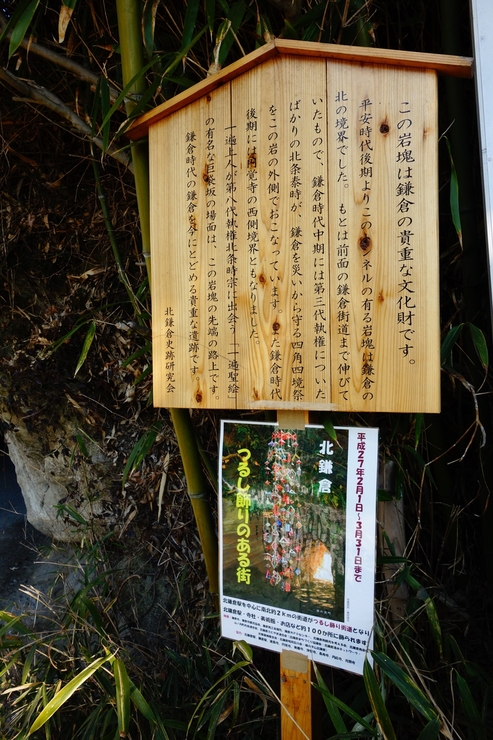 この岩塊は鎌倉の貴重な文化財です。
平安時代後期よりこのトンネルの有る岩塊は鎌倉の
北の境界でした。もとは前面の鎌倉街道まで伸びて
いたもので、鎌倉時代中期には第三代執権についた
ばかりの北条泰時が、鎌倉を災いから守る四角四境祭
をこの岩の外側でおこなっています。また鎌倉時代
後期には円覚寺の西側境界ともなりました。
一遍上人が第八代執権北条時宗に出会う「一遍聖絵」
の有名な巨袋坂の場面は、この岩塊の先端の路上です。
鎌倉時代の鎌倉を今にとどめる貴重な遺跡です。
北鎌倉史跡研究会
平成27年2月1日～3月31日まで
北鎌倉
つるし飾りのある街
北鎌倉駅を中心に南北約2kmの街道がつるし飾り街道となり
北鎌倉駅・寺社・美術館・お店など約100か所に飾られます